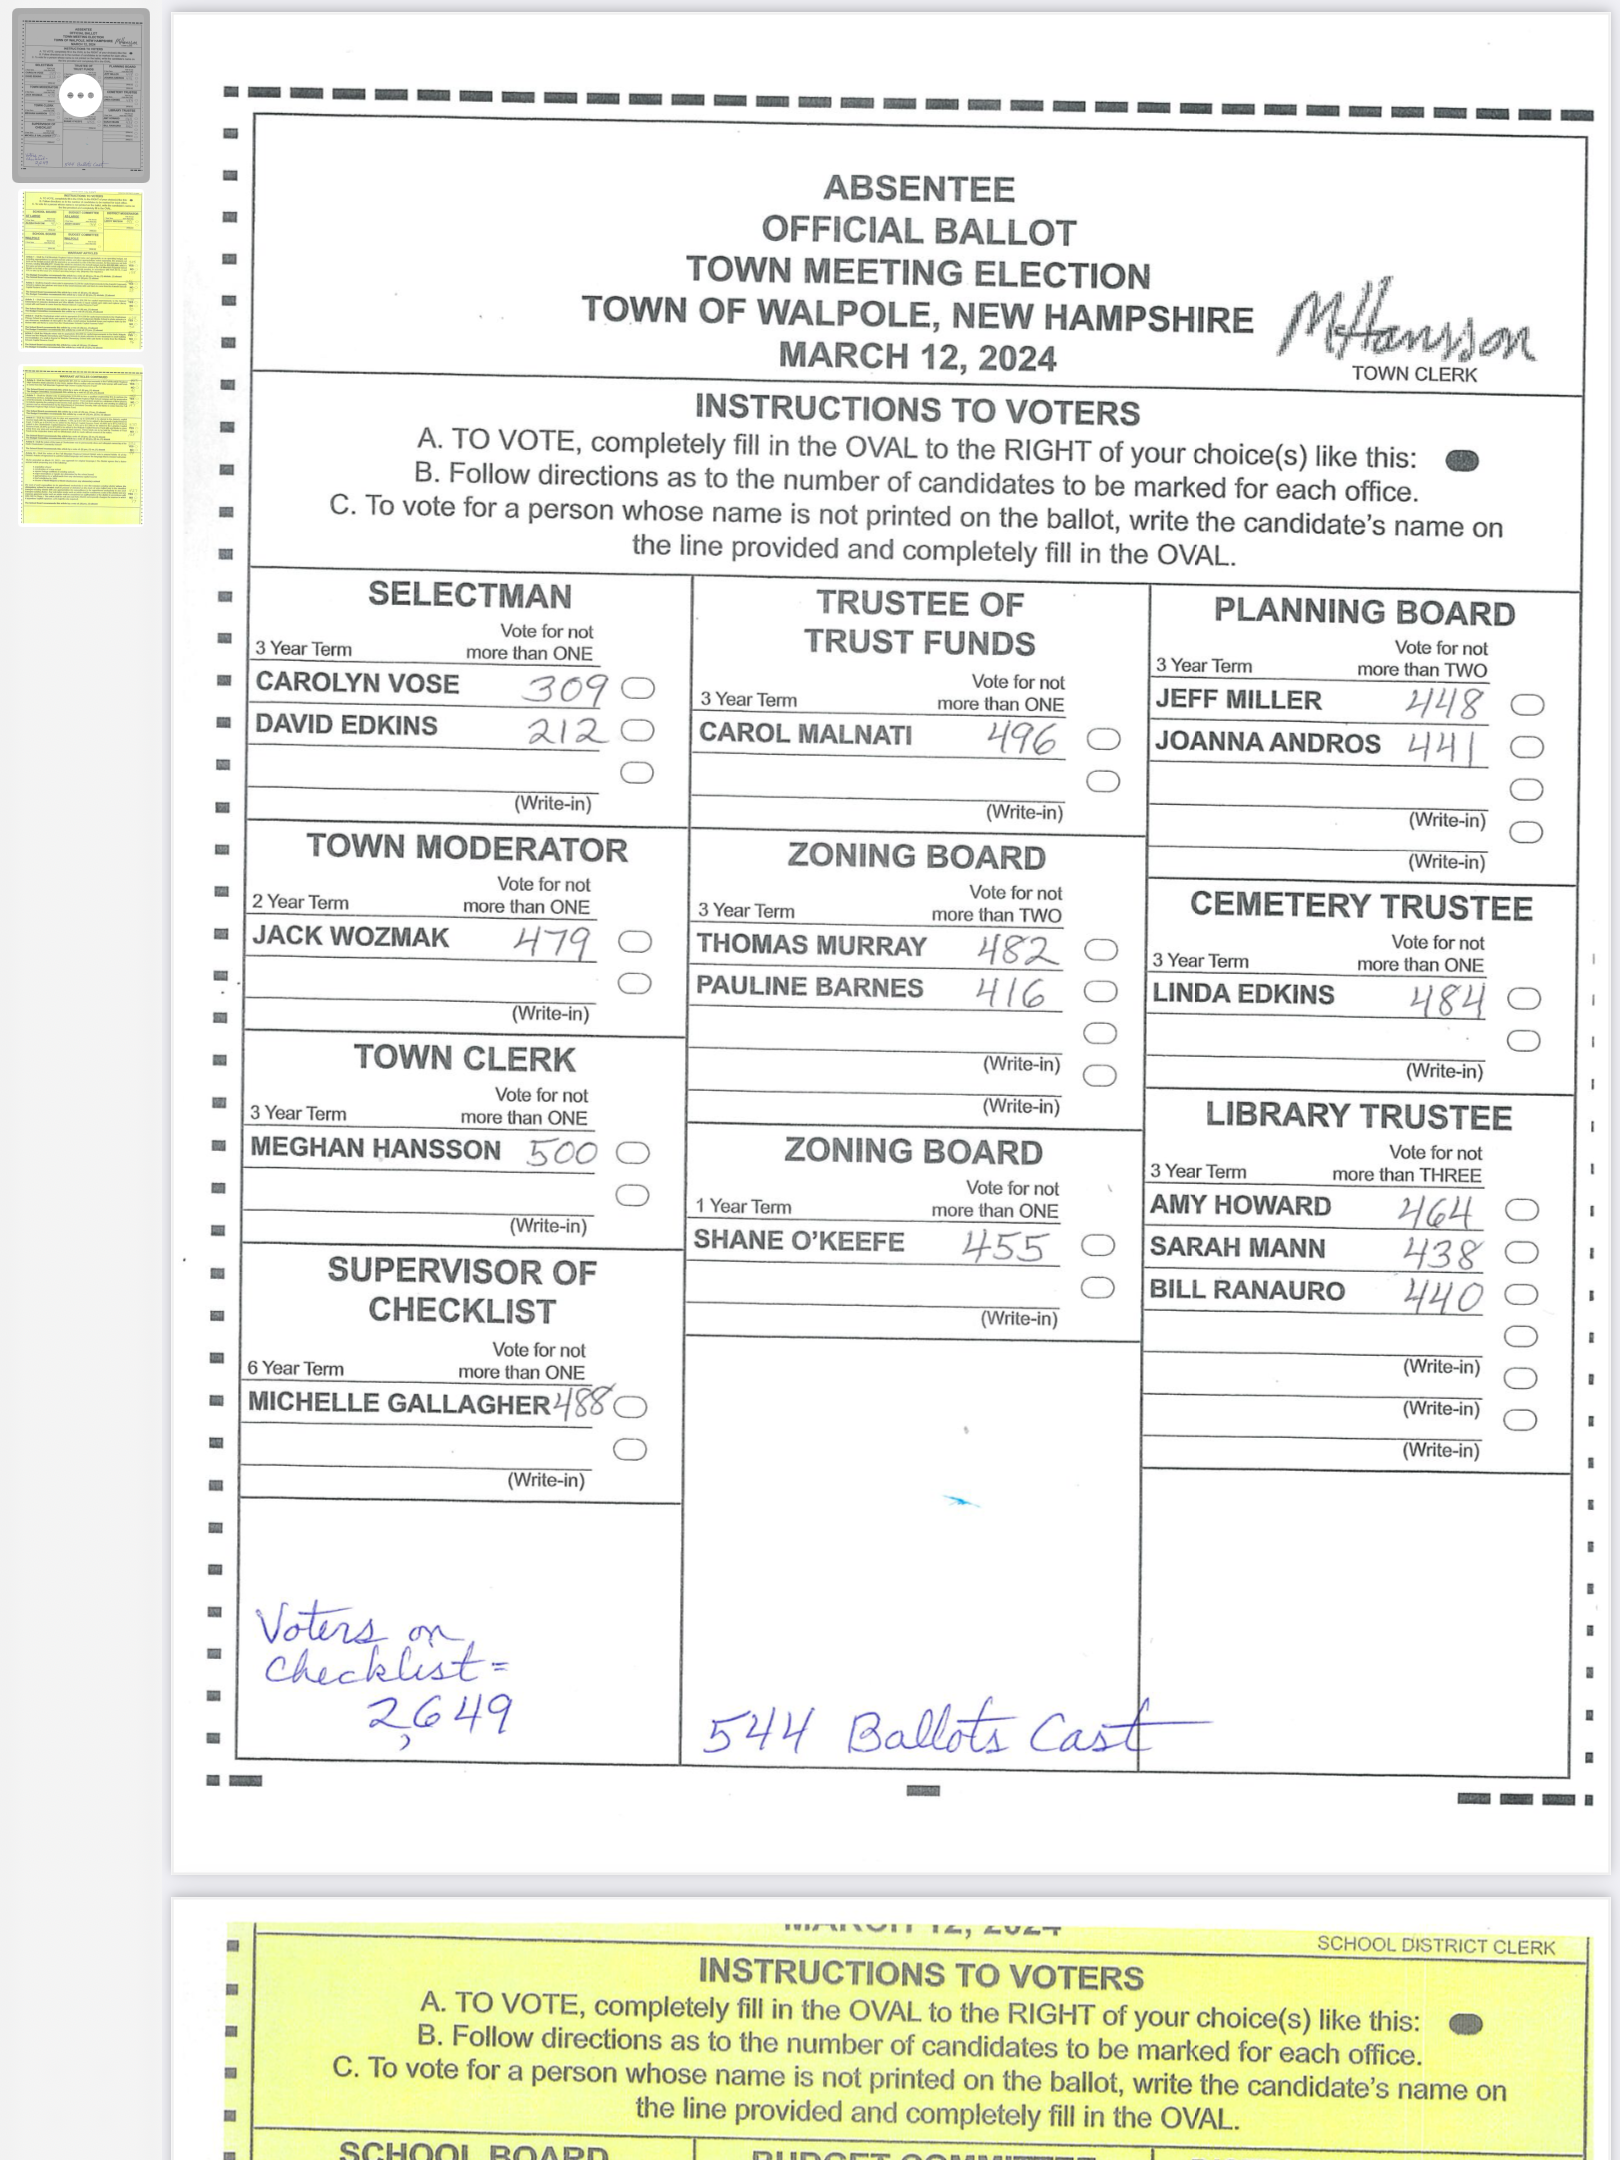 ABSENTEE
OFFICIAL BALLOT
TOWN MEETING ELECTION
TOWN OF WALPOLE, NEW HAMPSHIRE
MARCH 12, 2024
MHansson
TOWN CLERK
INSTRUCTIONS TO VOTERS
A. TO VOTE, completely fill in the OVAL to the RIGHT of your choice(s) like this:
B. Follow directions as to the number of candidates to be marked for each office.
C. To vote for a person whose name is not printed on the ballot, write the candidate's name on
the line provided and completely fill in the OVAL.
SELECTMAN
Vote for not
3 Year Term more than ONE
CAROLYN VOSE 309
DAVID EDKINS 212
(Write-in)
TOWN MODERATOR
Vote for not
2 Year Term more than ONE
JACK WOZMAK 479
(Write-in)
TOWN CLERK
Vote for not
3 Year Term more than ONE
MEGHAN HANSSON 500
(Write-in)
SUPERVISOR OF
CHECKLIST
Vote for not
6 Year Term more than ONE
MICHELLE GALLAGHER 488
(Write-in)
Voters on
Checklist =
2,649
TRUSTEE OF
TRUST FUNDS
Vote for not
3 Year Term more than ONE
CAROL MALNATI 496
(Write-in)
ZONING BOARD
Vote for not
3 Year Term more than TWO
THOMAS MURRAY 482
PAULINE BARNES 416
(Write-in)
(Write-in)
ZONING BOARD
Vote for not
1 Year Term more than ONE
SHANE O'KEEFE 455
(Write-in)
544 Ballots Cast
PLANNING BOARD
Vote for not
3 Year Term more than TWO
JEFF MILLER 448
JOANNA ANDROS 441
(Write-in)
(Write-in)
CEMETERY TRUSTEE
Vote for not
3 Year Term more than ONE
LINDA EDKINS 484
(Write-in)
LIBRARY TRUSTEE
Vote for not
3 Year Term more than THREE
AMY HOWARD 464
SARAH MANN 438
BILL RANAURO 440
(Write-in)
(Write-in)
(Write-in)
MARCH 12, 2024
SCHOOL DISTRICT CLERK
INSTRUCTIONS TO VOTERS
A. TO VOTE, completely fill in the OVAL to the RIGHT of your choice(s) like this:
B. Follow directions as to the number of candidates to be marked for each office.
C. To vote for a person whose name is not printed on the ballot, write the candidate's name on
the line provided and completely fill in the OVAL.
SCHOOL BOARD
BUDGET COMMITTEE